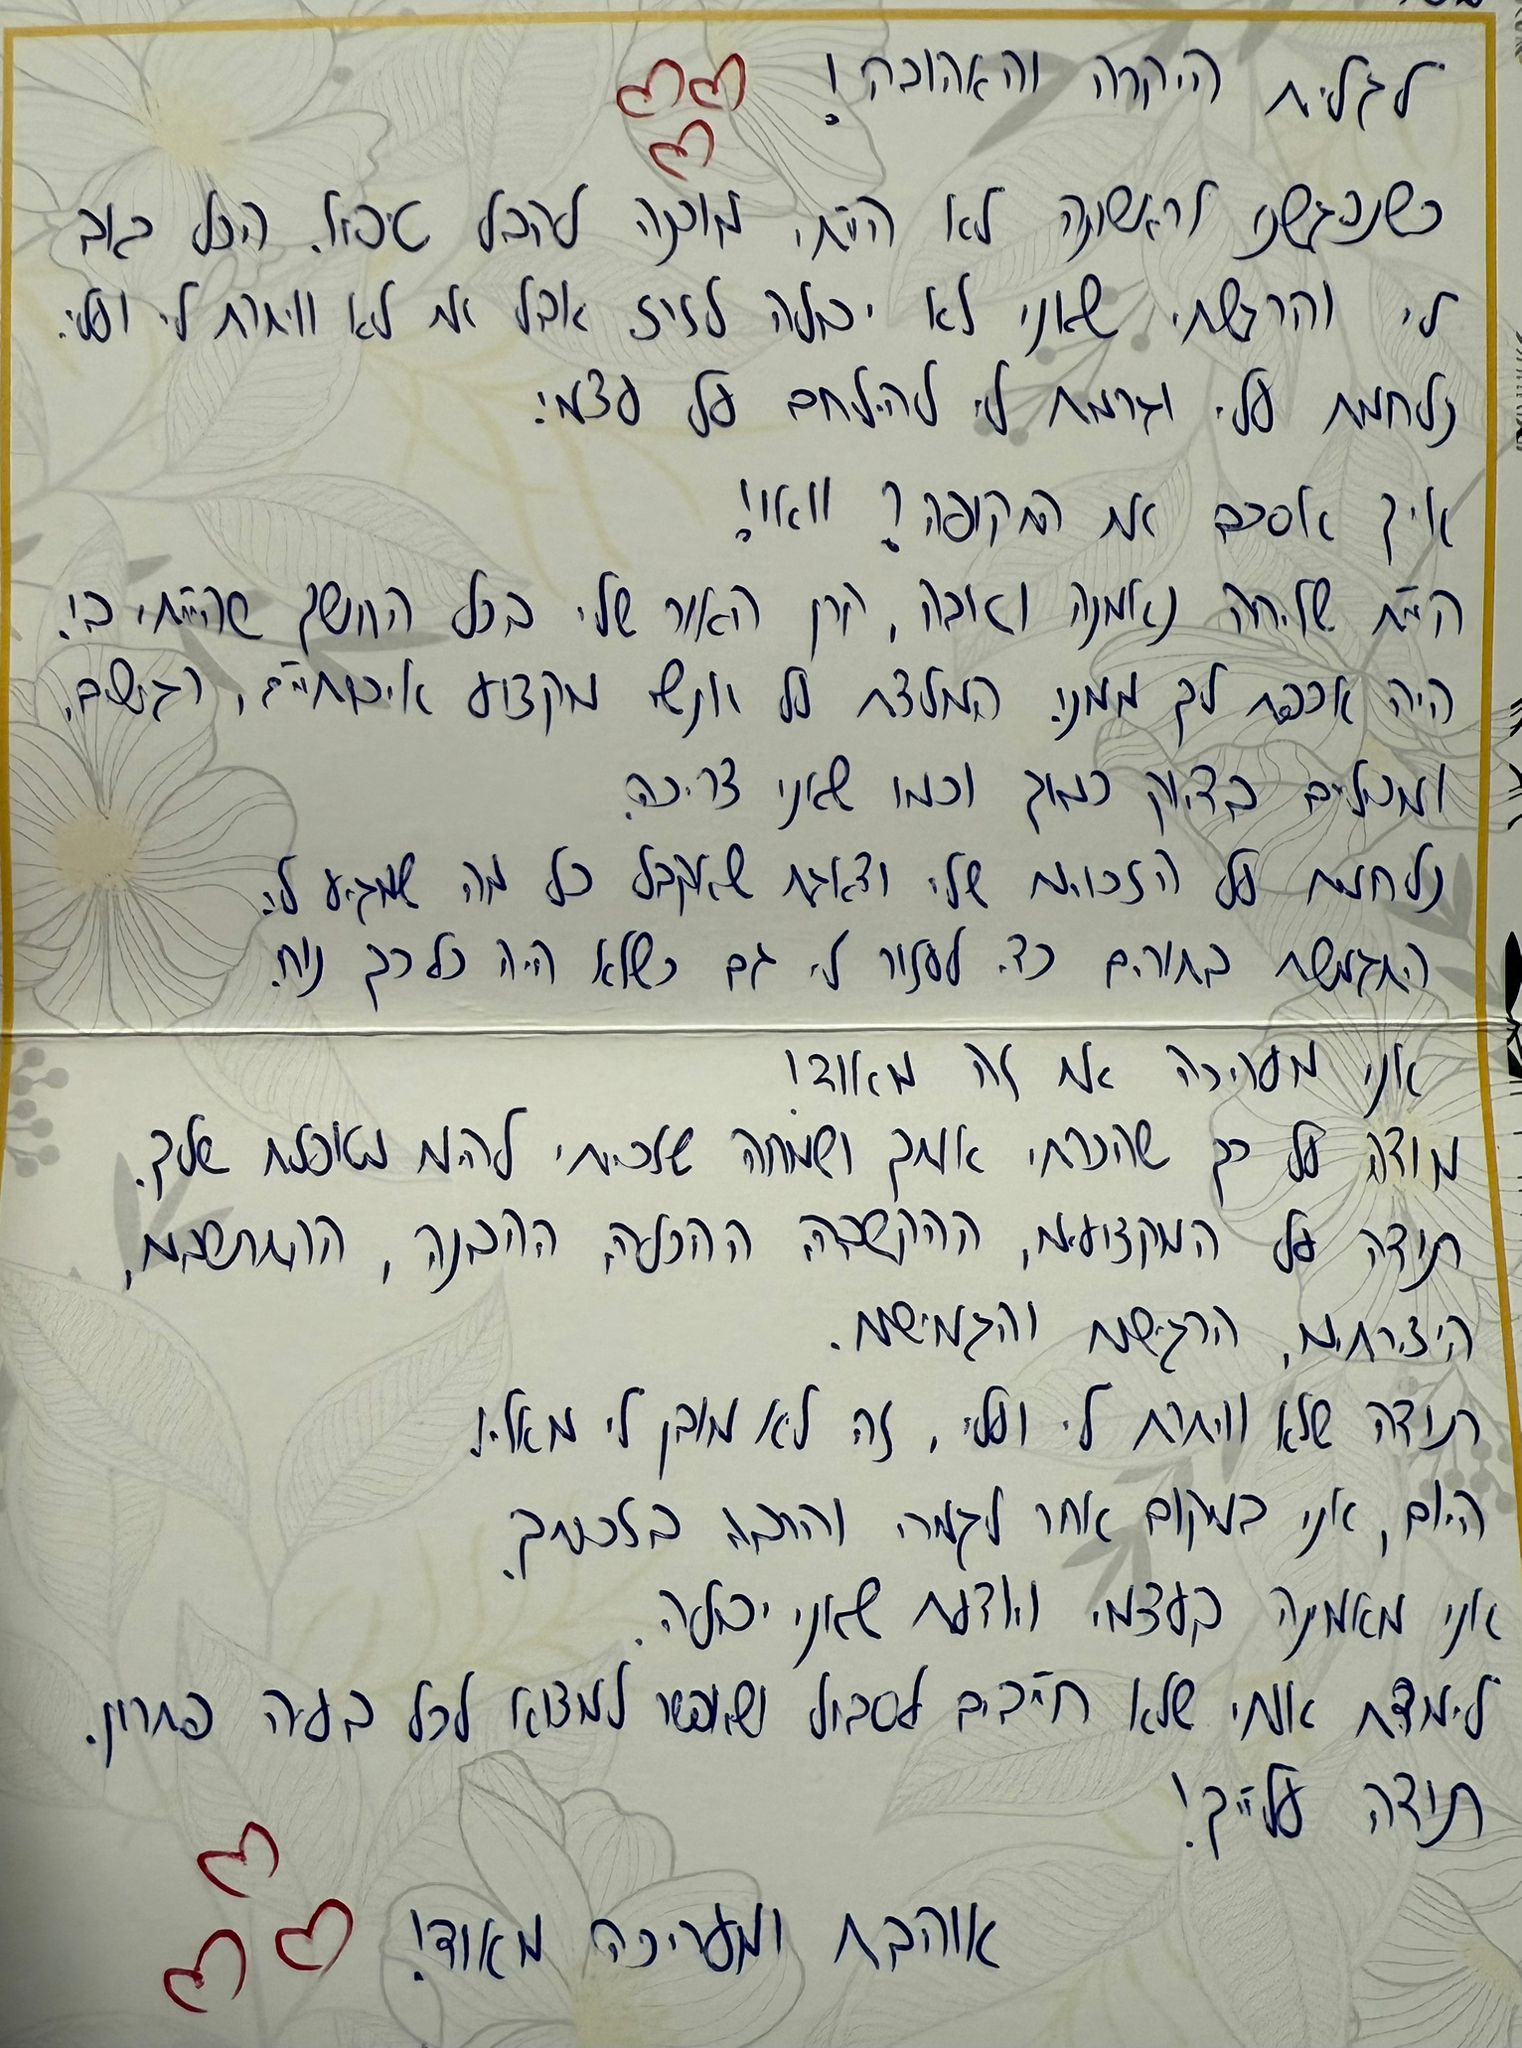 לגלית היקרה והאהובה!
כשנפגשנו לראשונה לא הייתי מוכנה לקבל טיפול. הכל כאב
לי והרגשתי שאני לא יכולה לזוז אבל את לא וויתרת לי ועלי.
נלחמת עלי וגרמת לי להילחם על עצמי.
איך אסכם את התקופה? וואו!
היית שליחה נאמנה וטובה, קרן האור שלי בכל החושך שהייתי בו.
היה אכפת לך ממני. המלצת על אנשי מקצוע איכותיים, רגישים,
ומכילים בדיוק כמוך וכמו שאני צריכה.
נלחמת על הזכויות שלי ודאגת שאקבל כל מה שמגיע לי.
התגמשת בתורים כדי לעזור לי גם כשלא היה כל כך נוח.
אני מעריכה את זה מאוד!
מודה על כך שהכרתי אותך ושמחה שזכיתי להיות מטופלת שלך.
תודה על המקצועיות, ההקשבה, ההכלה, ההבנה, ההתחשבות,
היצירתיות, הרגישות והגמישות.
תודה שלא וויתרת לי ועלי, זה לא מובן לי מאליו.
היום, אני במקום אחר לגמרי והרבה בזכותך.
אני מאמינה בעצמי ויודעת שאני יכולה.
לימדת אותי שלא חייבים לסבול ושאפשר למצוא לכל בעיה פתרון.
תודה עלייך!
אוהבת ומעריכה מאוד!